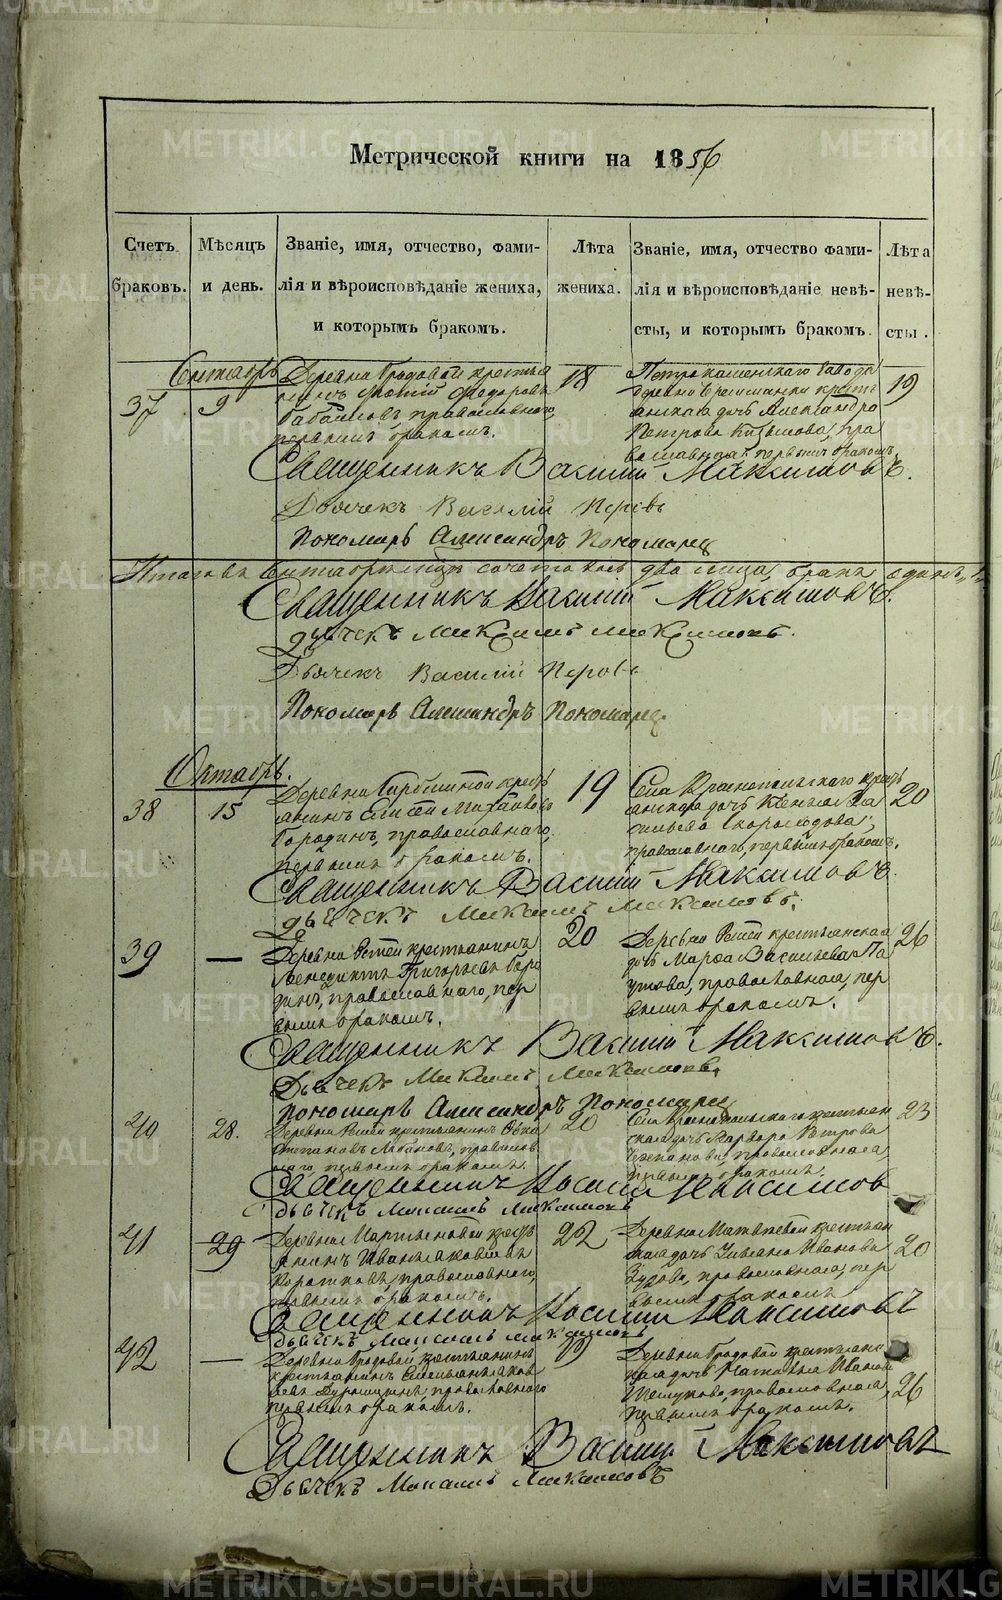 Метрической книги на 1856
Счетъ браковъ.
Мѣсяцъ и день.
Званіе, имя, отчество, фамилія и вѣроисповѣданіе жениха, и которымъ бракомъ.
Лѣта жениха.
Званіе, имя, отчество фамилія и вѣроисповѣданіе невѣсты, и которымъ бракомъ.
Лѣта невѣсты.
Сентябрь
37
9
Деревни Бродовой крестья
нинъ Федоровъ
православнаго,
первымъ бракомъ.
18
Петрокаменскаго завода
деревни крестъ
янская дочь Александра
Петрова пра
вославная, первымъ бракомъ.
19
Священникъ Василий Максимовъ.
Дьячекъ Василій
Пономарь Александръ Пономарев
Итого въ Сентябрѣ мцѣ сочеталось два лица, бракъ одинъ
Священникъ Василий Максимовъ.
дьячекъ Максимъ Максимовъ.
Дьячекъ Василій
Пономарь Александръ Пономарев.
Октябрь.
38
15
Деревни крестъ
янинъ Елисей Михайловъ
Бородинъ, православнаго,
первымъ бракомъ.
19
Села Краснопольскаго крестъ
янская дочь Ва
сильева Скороходова,
православная, первымъ бракомъ.
20
Священникъ Василий Максимовъ.
дьячекъ Максимъ Максимовъ.
39
—
Деревни Реши крестьянинъ
Венедиктъ Григорьевъ Боро
динъ, православнаго, пер
вымъ бракомъ.
20
Деревни Решей крестьянская
дочь Марфа Васильева Па
утова, православная, пер
вымъ бракомъ.
26
Священникъ Василий Максимовъ.
Дьячекъ Максимъ Максимовъ,
Пономарь Александръ Пономарев
40
28.
Деревни Решей крестьянинъ
Степановъ Лобановъ, православ
наго, первымъ бракомъ.
20
Села Краснопольскаго крестьян
ская дочь Варвара Петрова
православная,
первымъ бракомъ.
23
Священникъ Василий Максимов
дьячекъ Максимъ Максимовъ
41
29
Деревни Мартьяновой крестъ
янинъ Иванъ Яковлевъ
Коротковъ, православнаго,
первымъ бракомъ.
22
Деревни Матвевой крестьян
ская дочь Ульяна Иванова
Зудова, православная, пер
вымъ бракомъ
20
Священникъ Василий Максимовъ
дьячекъ Максимъ Максимовъ
42
—
Деревни Бродовой крестьянинъ
Емельянъ Яков
левъ православнаго
первымъ бракомъ.
19
Деревни Бродовой крестьян
ская дочь Наталья Иванова
православная
первымъ бракомъ.
26
Священникъ Василий Максимовъ
Дьячекъ Максимъ Максимовъ
METRIKI.GASO-URAL.RU